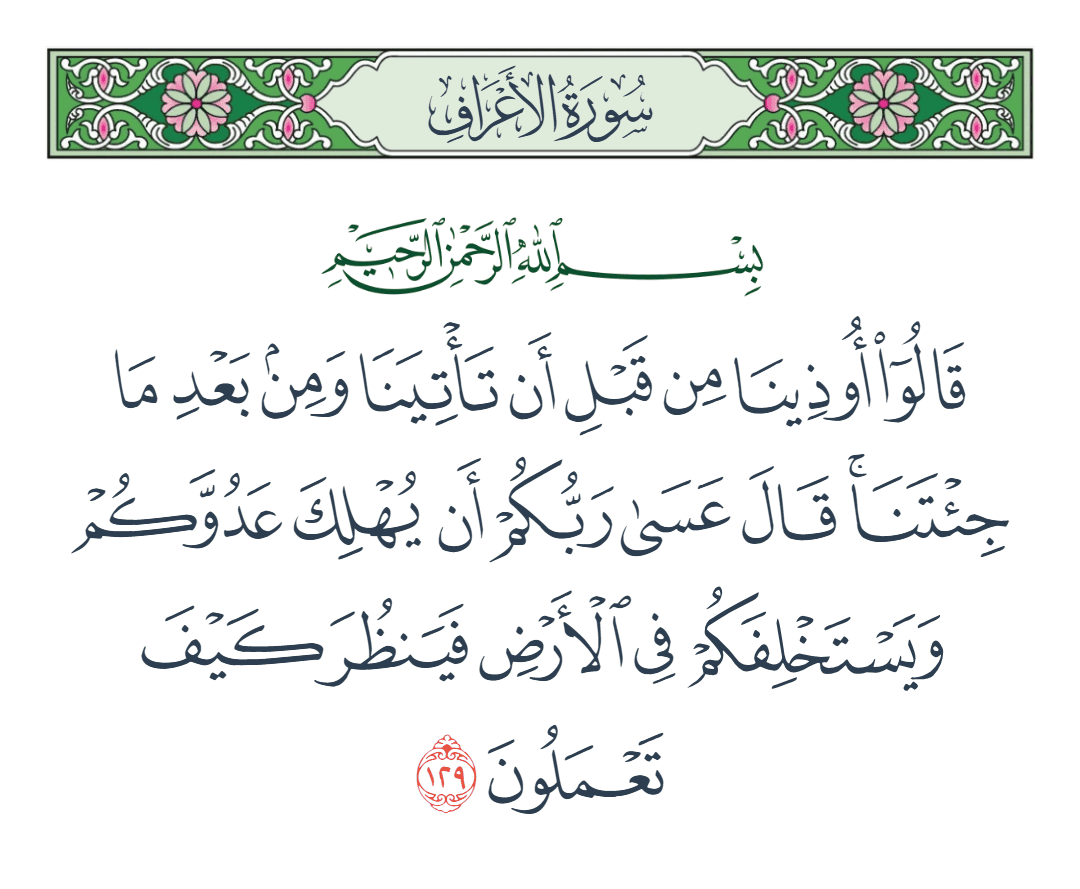 سُورَةُ الأَعْرَافِ
بِسْمِ ٱللَّهِ ٱلرَّحْمَٰنِ ٱلرَّحِيمِ
قَالُوٓا۟ أُوذِينَا مِن قَبْلِ أَن تَأْتِيَنَا وَمِنۢ بَعْدِ مَا
جِئْتَنَا ۚ قَالَ عَسَىٰ رَبُّكُمْ أَن يُهْلِكَ عَدُوَّكُمْ
وَيَسْتَخْلِفَكُمْ فِى ٱلْأَرْضِ فَيَنظُرَ كَيْفَ
تَعْمَلُونَ ١٢٩